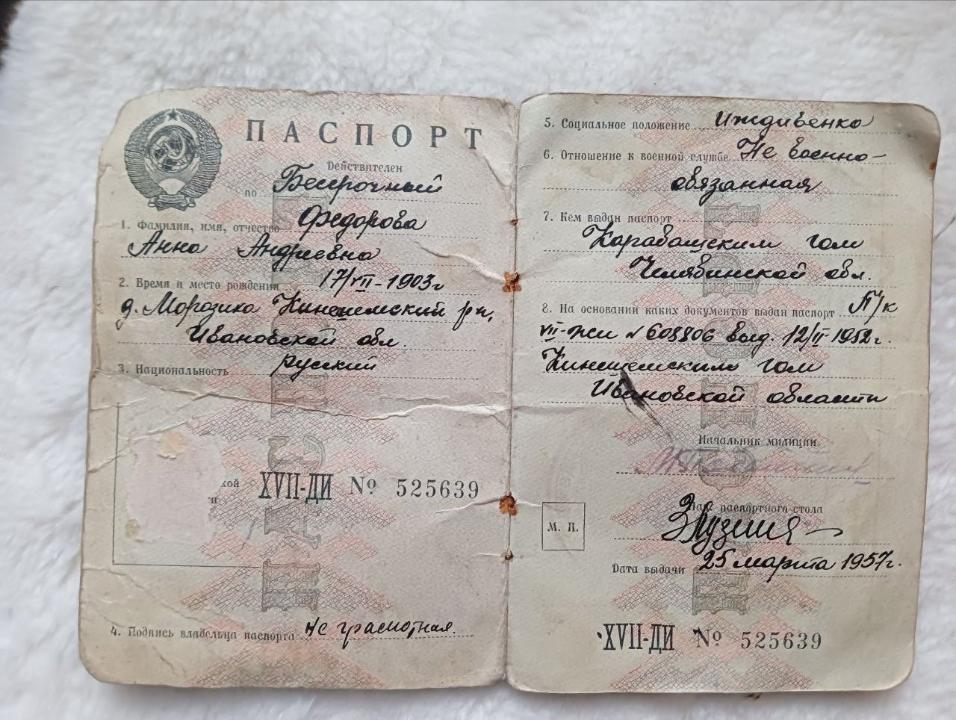 ПАСПОРТ
Действителен
по Бессрочный
1. Фамилия, имя, отчество Федорова
Анна Андреевна
2. Время и место рождения 17/VII-1903г
д. Морозиха Кинешемский р-н,
Ивановской обл.
3. Национальность русский
XVII-ДИ № 525639
4. Подпись владельца паспорта Не грамотная.
5. Социальное положение Иждивенка
6. Отношение к военной службе Не военно-
обязанная
7. Кем выдан паспорт
Карабашским гом
Челябинской обл.
8. На основании каких документов выдан паспорт П/к
№ 608806 выд. 12/II 1952г.
Кинешемским гом
Ивановской области
Начальник милиции
Нач. паспортного стола
М. П.
Дата выдачи 25 марта 1957г.
XVII-ДИ № 525639